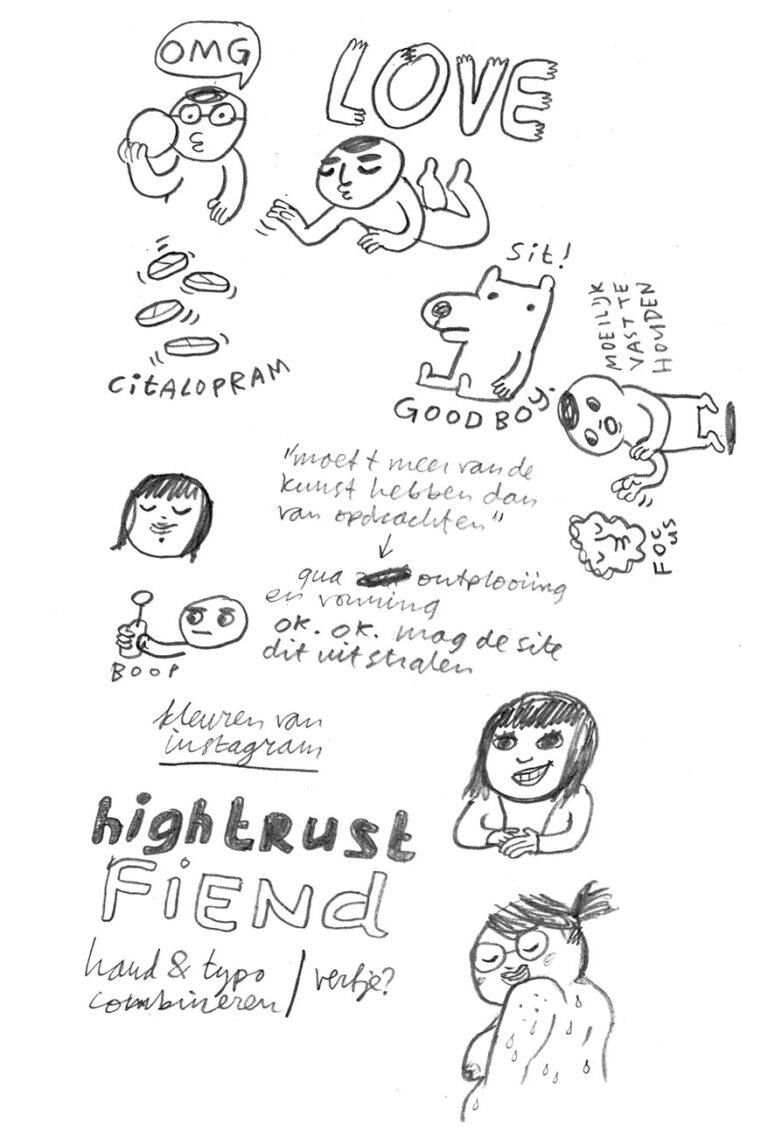 OMG
LOVE
Sit!
GOOD BOy.
MOEILIJK
VAST TE
HOUDEN
CitALOPRAM
"moet + meer van de
kunst hebben dan
van opdrachten"
FOC
US
qua outplooiing
en vorming
OK. OK. mag de site
dit uitstralen
BOOP
kleuren van
instagram
hightRust
FiENd
hand & typo
combineren / verfje?